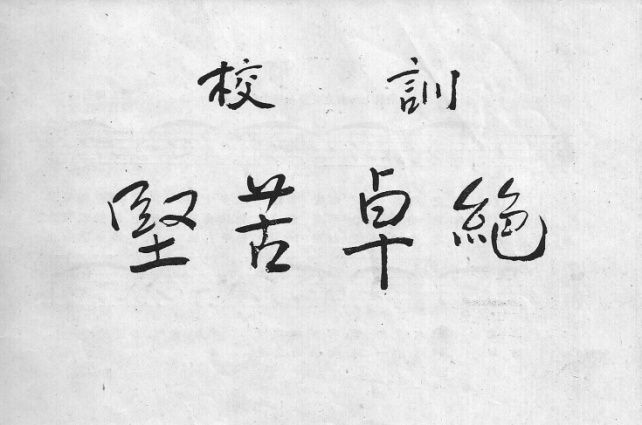 校訓
堅苦卓絕